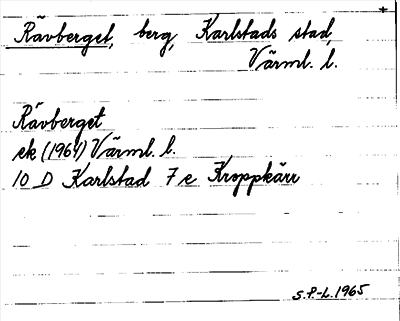 +
Rävberget, berg, Karlstads stad,
Värml. l.
Rävberget
ek (1964) Värml. l.
10 D Karlstad 7 e Kroppkärr
S.P-L. 1965